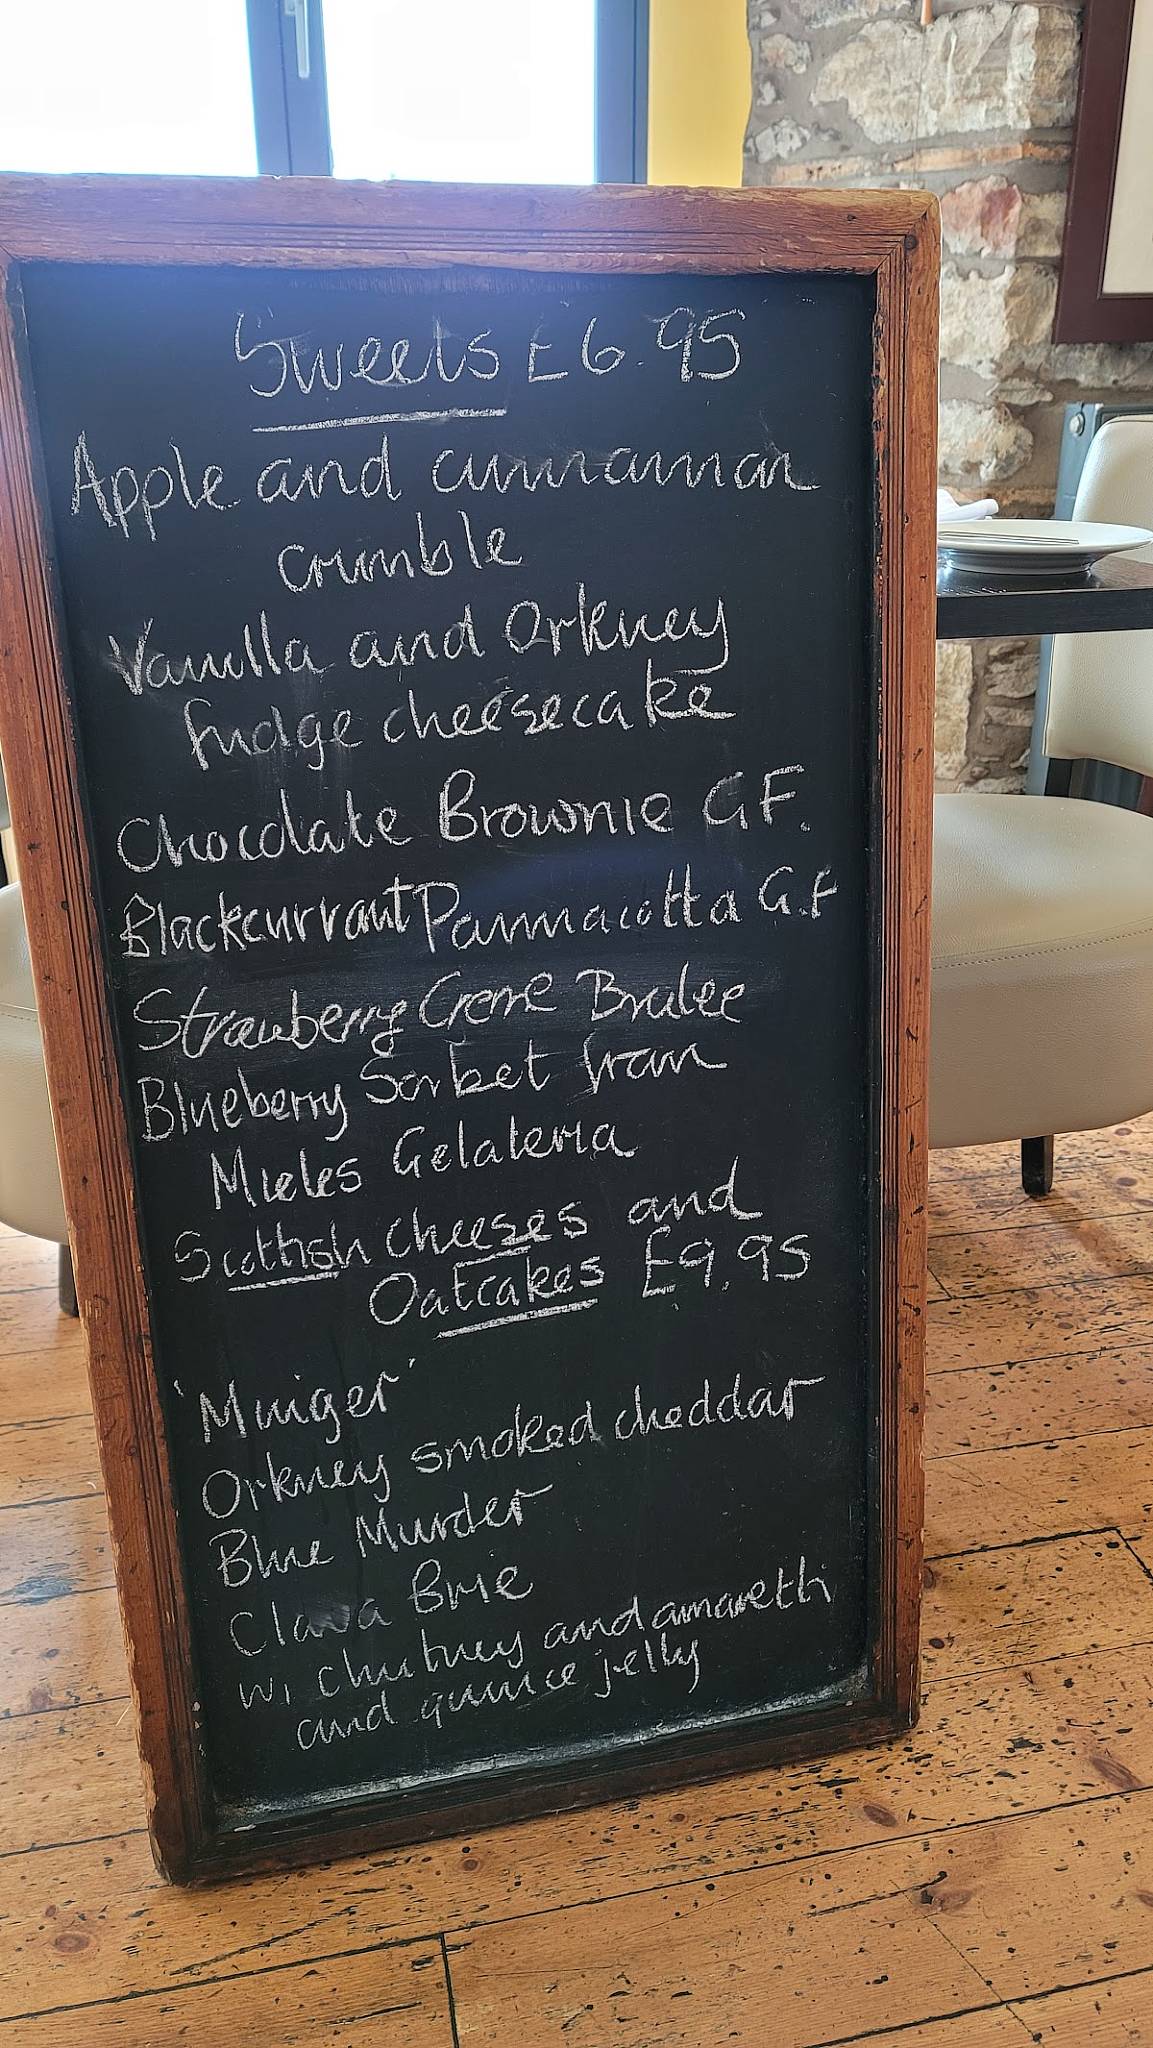 Sweets £6.95
Apple and cinnamon
crumble
Vanilla and Orkney
fudge cheesecake
Chocolate Brownie G.F.
Blackcurrant Pannacotta G.F
Strawberry Creme Brulee
Blueberry Sorbet from
Mieles Gelateria
Scottish cheeses and
Oatcakes £9.95
'Minger'
Orkney smoked cheddar
Blue Murder
Clava Brie
w, chutney and amaretti
and quince jelly